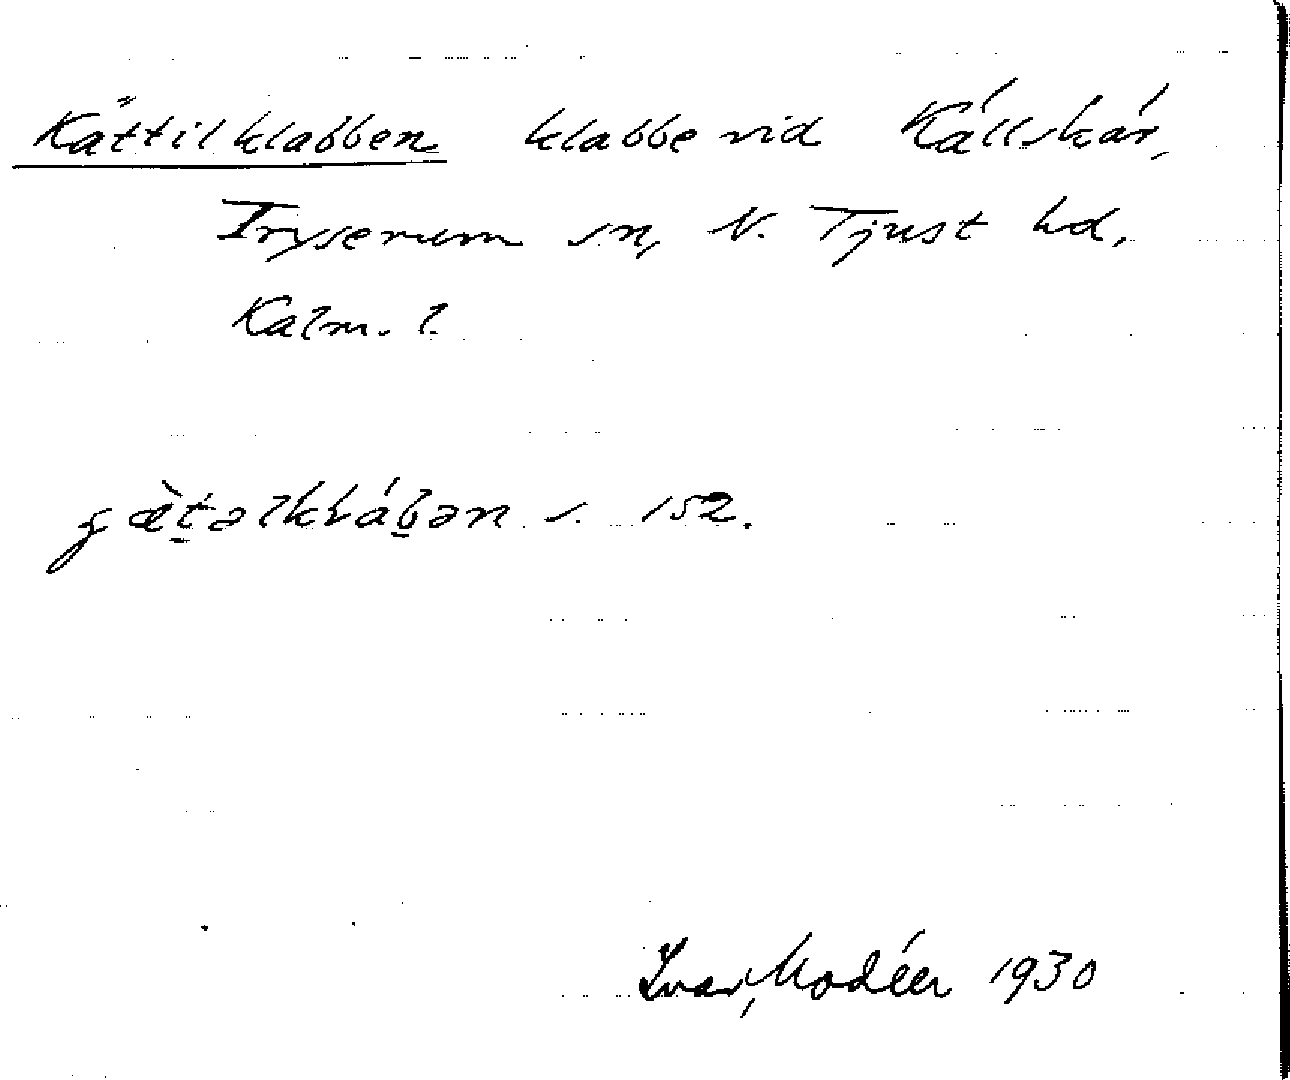 Kättilklabben klabbe vid Källskär,
Tryserum sn, N. Tjust hd,
Kalm. l.
s. 152.
Ivar Modéer 1930